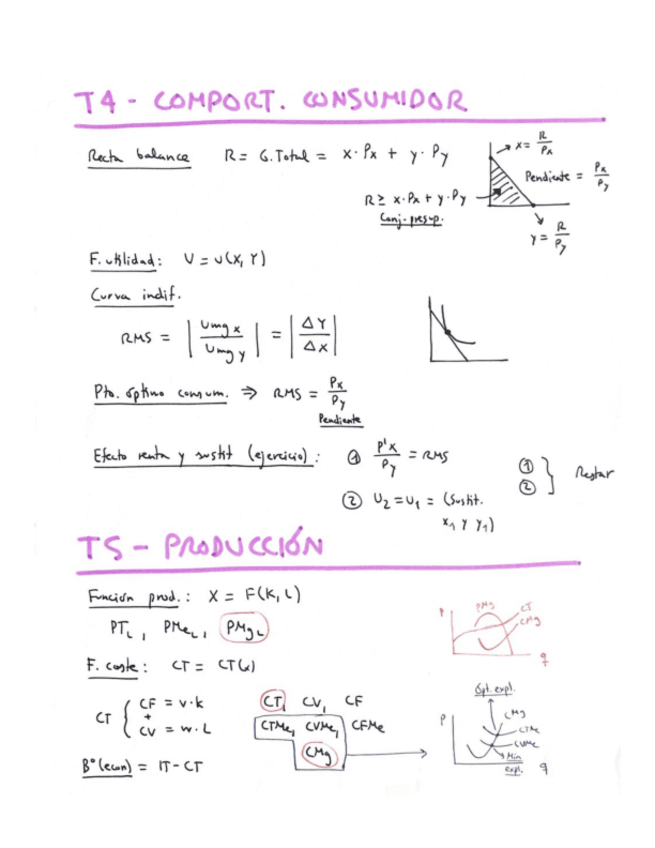 T4 - COMPORT. CONSUMIDOR
Recta balance R = G.Total = x · Px + y · Py
x = R/Px
Pendiente = Px/Py
R ≥ x · Px + y · Py
Conj. presup.
y = R/Py
F. utilidad: U = u(X, Y)
Curva indif.
RMS = |Umg x / Umg y| = |ΔY / ΔX|
Pto. óptimo consum. ⇒ RMS = Px/Py
Pendiente
Efecto renta y sustit (ejercicio): ① P'x/Py = RMS
② U2 = U1 = (Sustit. x1 y y1)
① ② } Restar
T5 - PRODUCCIÓN
Función prod.: X = F(K, L)
PTL, PMeL, PMgL
P PMg CT CMg q
F. coste: CT = CT(x)
CT { CF = v · k + CV = w · L
CT, CV, CF
CTMe, CVMe, CFMe
CMg
Opt. expl.
P CMg CTMe CVMe Mín expl. q
Bº (econ) = IT - CT